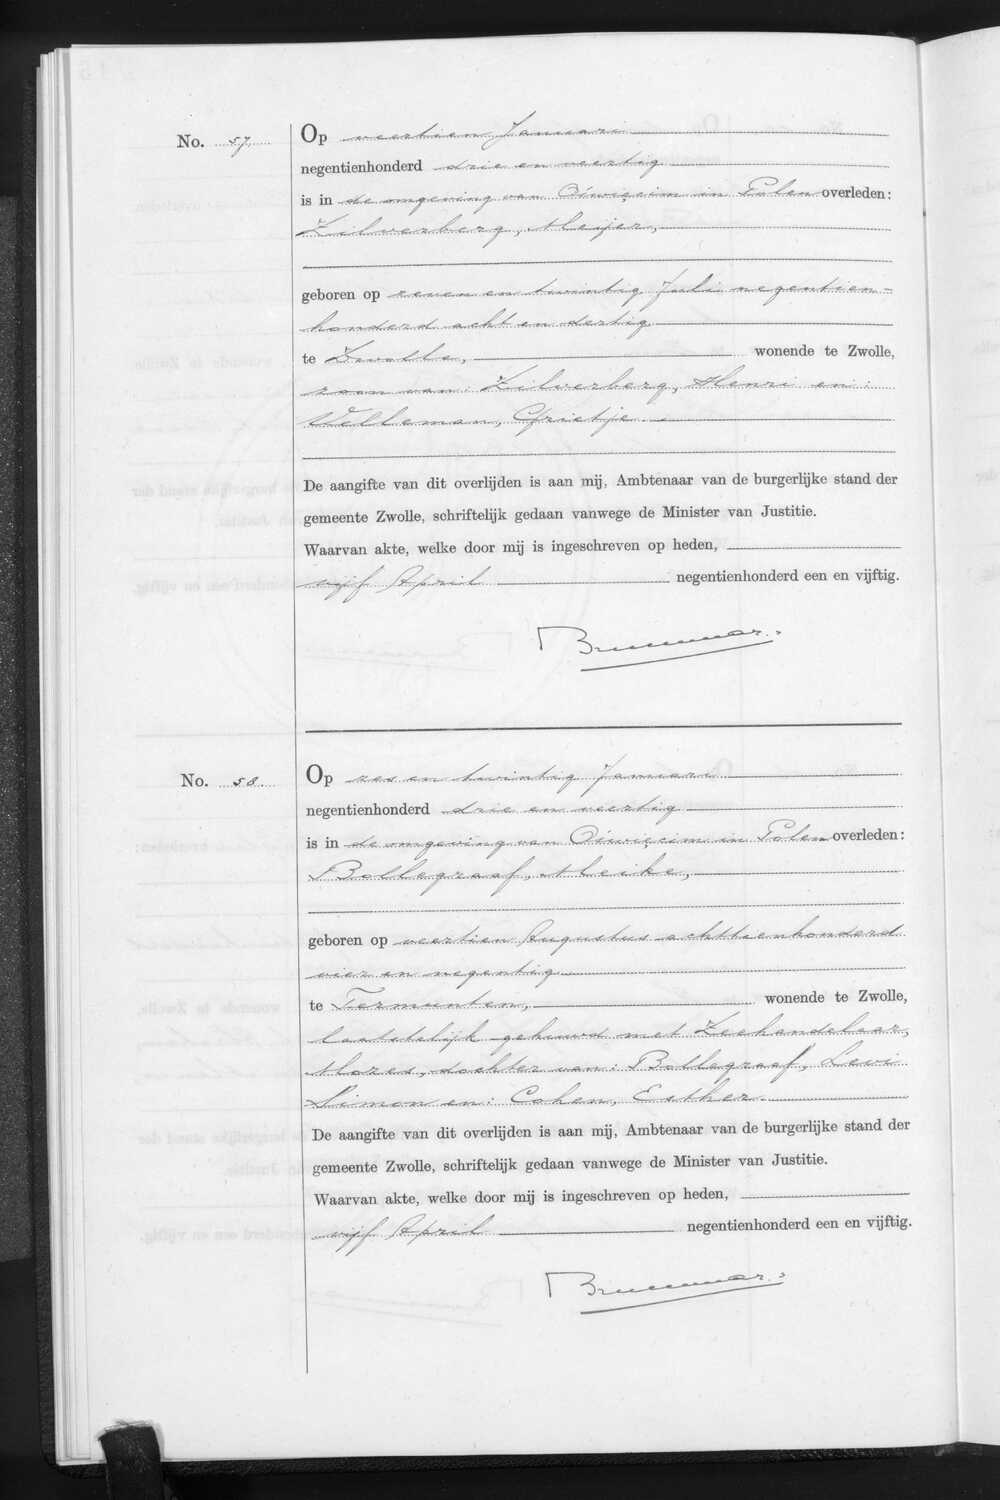 No. 57.
Op veertien Januari
negentienhonderd drie en veertig
is in de omgeving van Oświęcim in Polen overleden:
Zilverberg, Meijer,
geboren op zeven en twintig Juli negentien-
honderd acht en dertig
te Zwolle, wonende te Zwolle,
zoon van: Zilverberg, Henri en:
Velleman, Grietje.
De aangifte van dit overlijden is aan mij, Ambtenaar van de burgerlijke stand der
gemeente Zwolle, schriftelijk gedaan vanwege de Minister van Justitie.
Waarvan akte, welke door mij is ingeschreven op heden,
vijf April negentienhonderd een en vijftig.
No. 58.
Op zes en twintig Januari
negentienhonderd drie en veertig
is in de omgeving van Oświęcim in Polen overleden:
Bollegraaf, Meike,
geboren op veertien Augustus achttienhonderd
vier en negentig
te Termunten, wonende te Zwolle,
laatstelijk gehuwd met Zeehandelaar,
Mozes, dochter van: Bollegraaf, Levi
Simon en: Cohen, Esther.
De aangifte van dit overlijden is aan mij, Ambtenaar van de burgerlijke stand der
gemeente Zwolle, schriftelijk gedaan vanwege de Minister van Justitie.
Waarvan akte, welke door mij is ingeschreven op heden,
vijf April negentienhonderd een en vijftig.